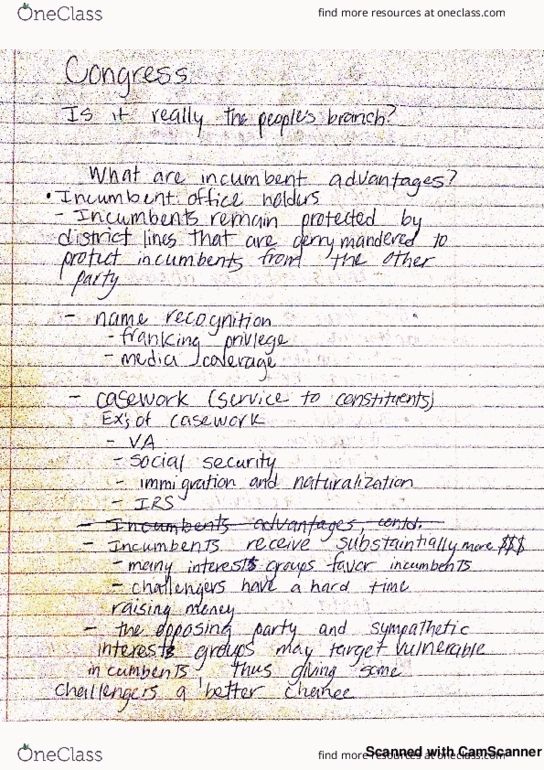 OneClass
find more resources at oneclass.com
Congress
Is it really the peoples branch?
What are incumbent advantages?
• Incumbent: office holders
- Incumbents remain protected by
district lines that are gerrymandered to
protect incumbents from the other
party
- name recognition
- franking privlege
- media coverage
- casework (service to constituents)
Ex's of casework
- VA
- social security
- immigration and naturalization
- IRS
- Incumbents advantages, contd.
- Incumbents receive substaintially more $$$
- many interests groups favor incumbents
- challengers have a hard time
raising money
- the opposing party and sympathetic
interests groups may target vulnerable
incumbents, thus giving some
challengers a better chance
OneClass
find more resources at oneclass.com
Scanned with CamScanner